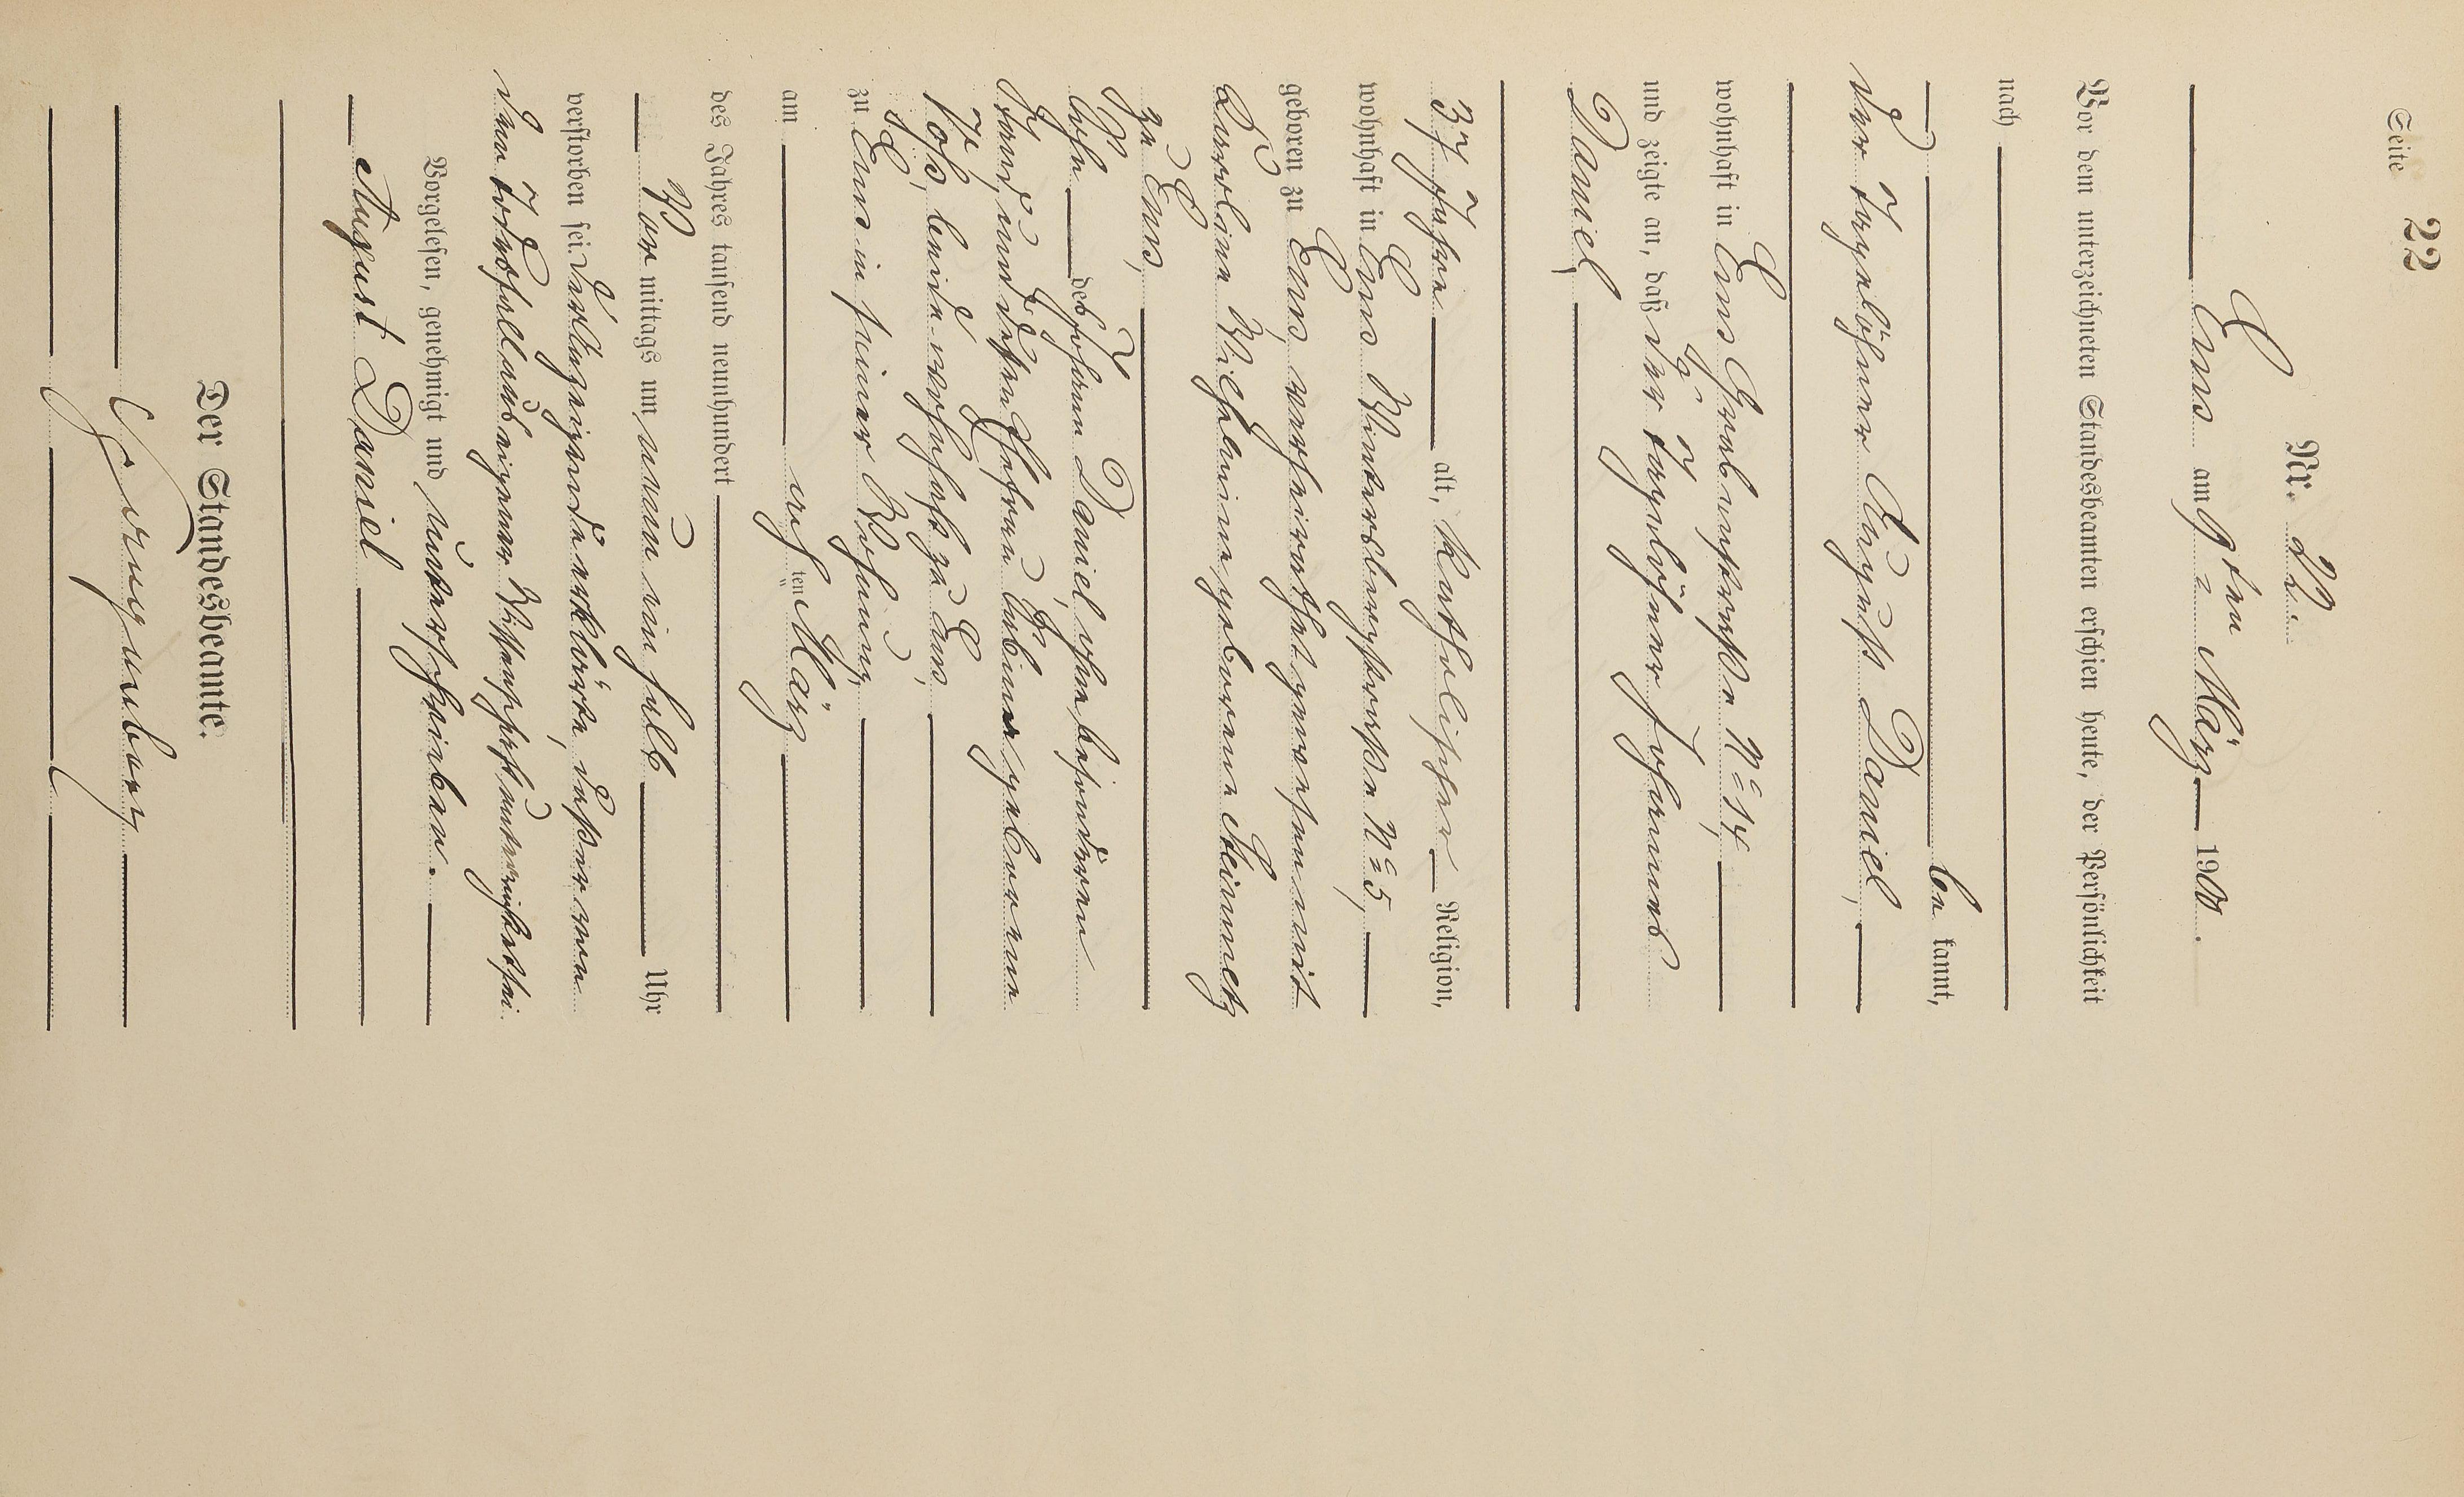 Seite 22
Nr. 22.
Ems am 9ten März 1900.
Vor dem unterzeichneten Standesbeamten erschien heute, der Persönlichkeit
nach
be kannt,
der Tagelöhner August Daniel,
wohnhaft in Ems Grabenstraße No 14
und zeigte an, daß der Tagelöhner Johannes
Daniel,
37 Jahre alt, katholischer Religion,
wohnhaft in Ems Wintersbergstraße No 5,
geboren zu Ems, verheirathet gewesen mit
Karoline Wilhelmine geborene Steinmetz
zu Ems,
Sohn des Johann Daniel ohne besonderen
Stand und dessen Ehefrau Sabine geborene
beide wohnhaft zu Ems,
zu Ems in seiner Wohnung,
am acht ten März
des Jahres tausend neunhundert
Vor mittags um neun ein halb Uhr
verstorben sei. Der Anzeigende erklärte, daß er von
dem Todesfall aus eigener Wissenschaft unterrichtet sei.
Vorgelesen, genehmigt und unterschrieben.
August Daniel
Der Standesbeamte.